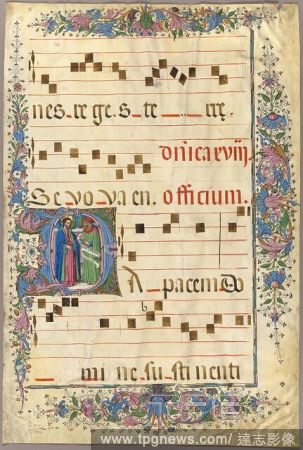 nes. re ge. s. te rrę.
Dñica xviij.
Se vo va en. officium.
DA pacem Do
mi ne su sti nenti
www.tpgnews.com/ 達志影像